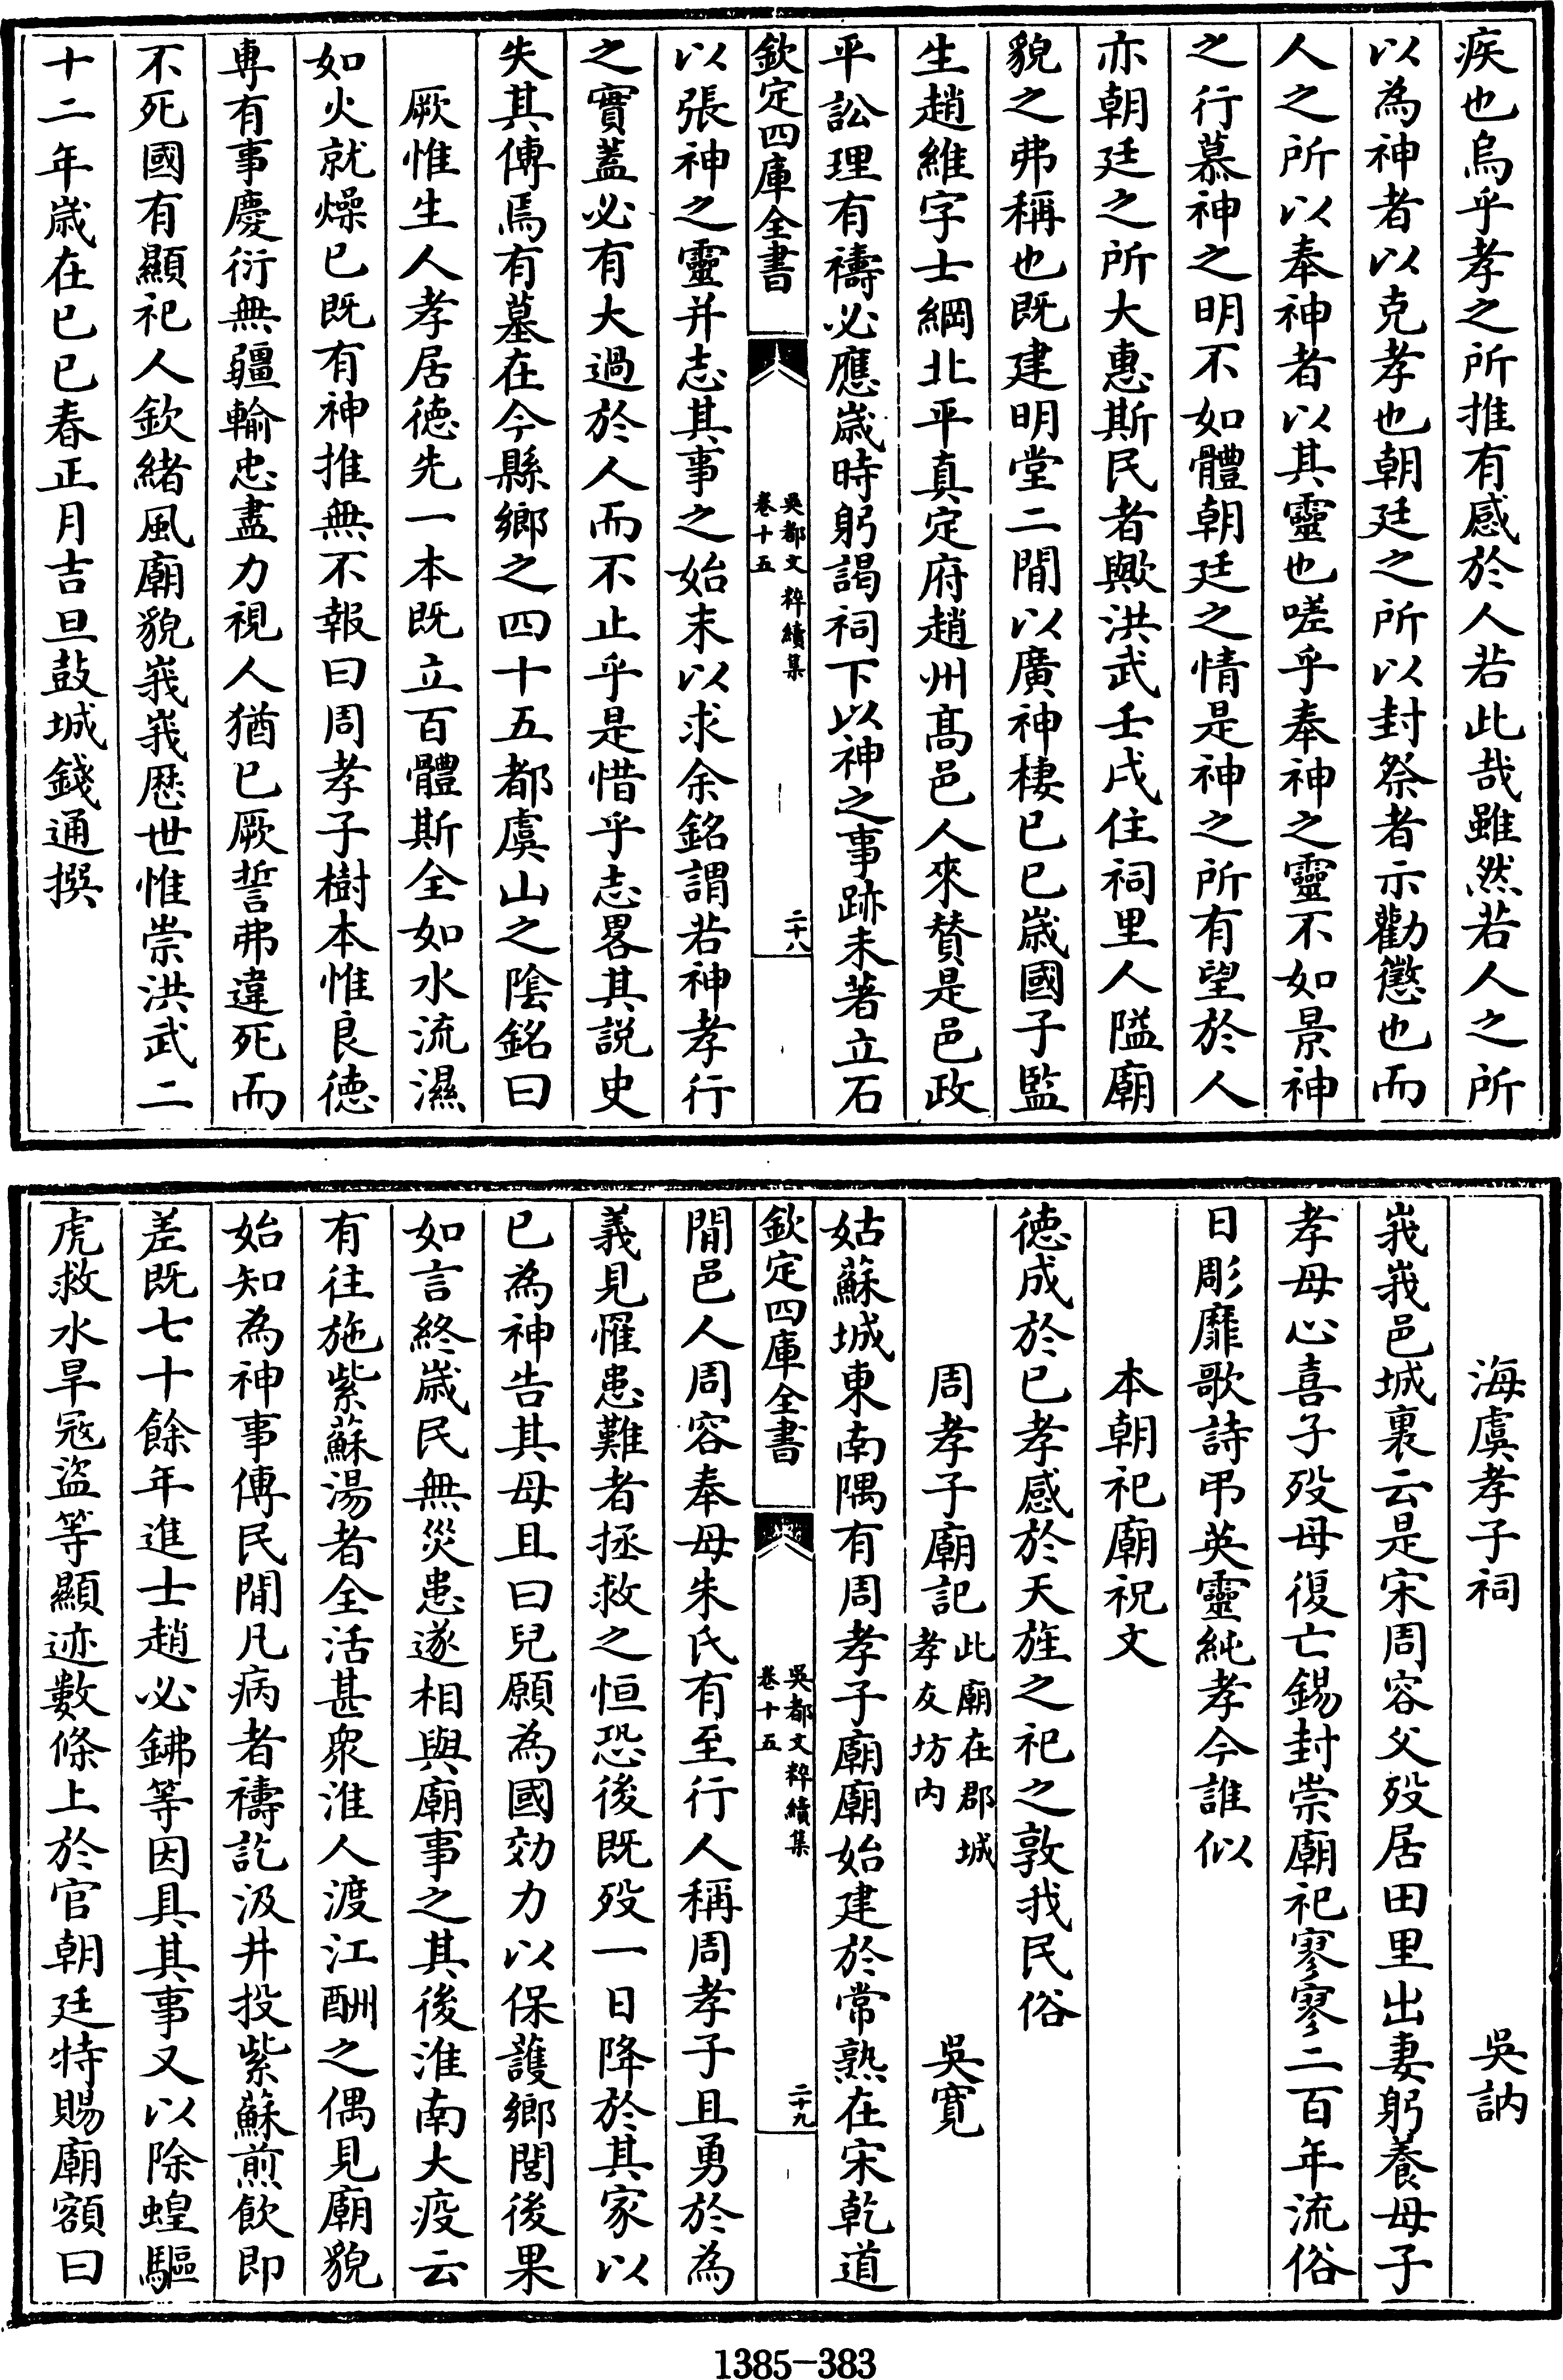 疾也烏乎孝之所推有感於人若此哉雖然若人之所
以為神者以克孝也朝廷之所以封祭者示勸懲也而
人之所以奉神者以其靈也嗟乎奉神之靈不如景神
之行慕神之明不如體朝廷之情是神之所有望於人
亦朝廷之所大惠斯民者歟洪武壬戌住祠里人隘廟
貌之弗稱也既建明堂二間以廣神棲已巳歲國子監
生趙維字士綱北平真定府趙州高邑人來贊是邑政
平訟理有禱必應歲時躬謁祠下以神之事跡未著立石
欽定四庫全書
吳都文粹續集
卷十五
二十八
以張神之靈并志其事之始末以求余銘謂若神孝行
之實蓋必有大過於人而不止乎是惜乎志畧其説史
失其傳焉有墓在今縣鄉之四十五都虞山之陰銘曰
厥惟生人孝居德先一本既立百體斯全如水流濕
如火就燥已既有神推無不報曰周孝子樹本惟良德
專有事慶衍無疆輸忠盡力視人猶已厥誓弗違死而
不死國有顯祀人欽緒風廟貌峩峩歷世惟崇洪武二
十二年歲在已巳春正月吉旦鼓城錢通撰
海虞孝子祠 吳訥
峩峩邑城裏云是宋周容父歿居田里出妻躬養母子
孝母心喜子歿母復亡錫封崇廟祀寥寥二百年流俗
日彫靡歌詩弔英靈純孝今誰似
本朝祀廟祝文
德成於已孝感於天旌之祀之敦我民俗
周孝子廟記此廟在郡城孝友坊内 吳寛
姑蘇城東南隅有周孝子廟廟始建於常熟在宋乾道
欽定四庫全書
吳都文粹續集
卷十五
二十九
間邑人周容奉母朱氏有至行人稱周孝子且勇於為
義見罹患難者拯救之恒恐後既歿一日降於其家以
已為神告其母且曰兒願為國効力以保護鄉閭後果
如言終歲民無災患遂相與廟事之其後淮南大疫云
有往施紫蘇湯者全活甚衆淮人渡江酬之偶見廟貌
始知為神事傳民間凡病者禱訖汲井投紫蘇煎飲即
差既七十餘年進士趙必鏽等因具其事又以除蝗驅
虎救水旱冦盜等顯迹數條上於官朝廷特賜廟額曰
1385-383